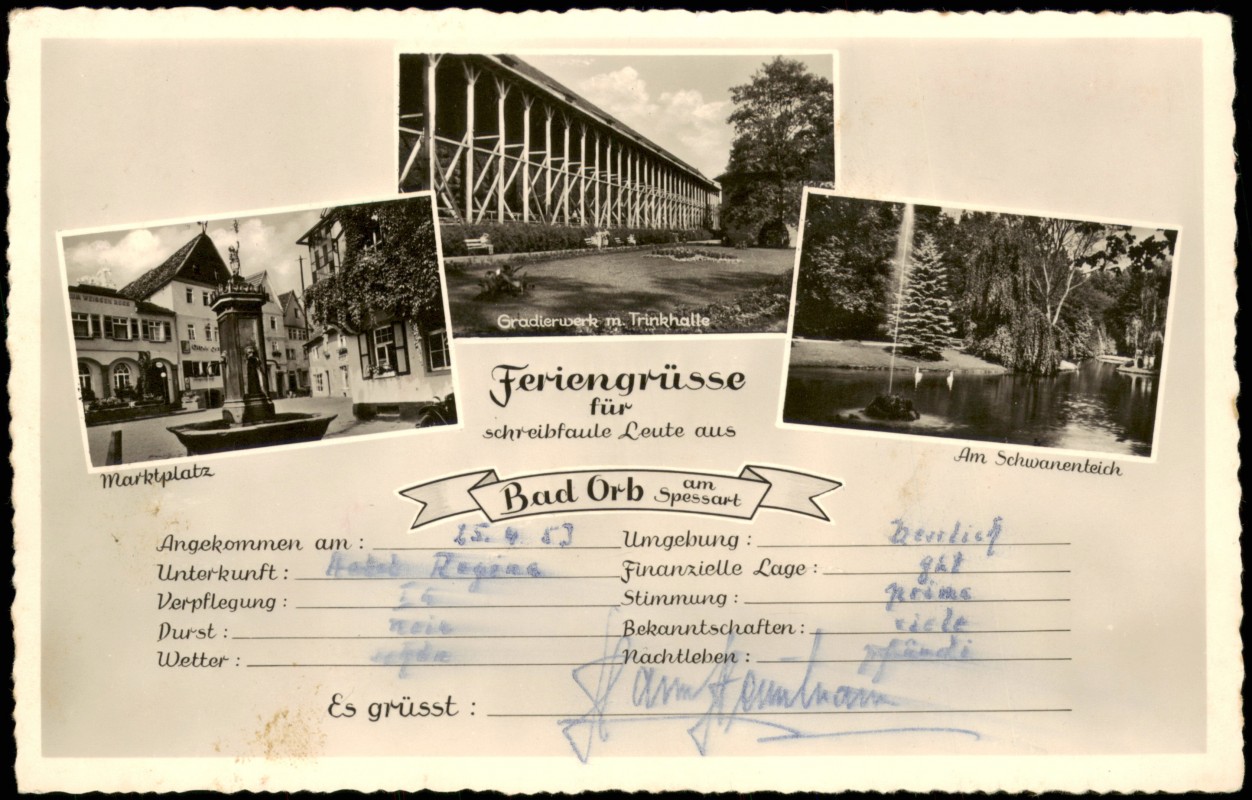 Gradierwerk m. Trinkhalle
Marktplatz
Am Schwanenteich
Feriengrüsse
für
schreibfaule Leute aus
Bad Orb am Spessart
Angekommen am : 25. 4. 53
Unterkunft : Hotel Regina
Verpflegung : Ia
Durst : nein
Wetter :
Umgebung : herrlich
Finanzielle Lage : gut
Stimmung : prima
Bekanntschaften : viele
Nachtleben :
Es grüsst :